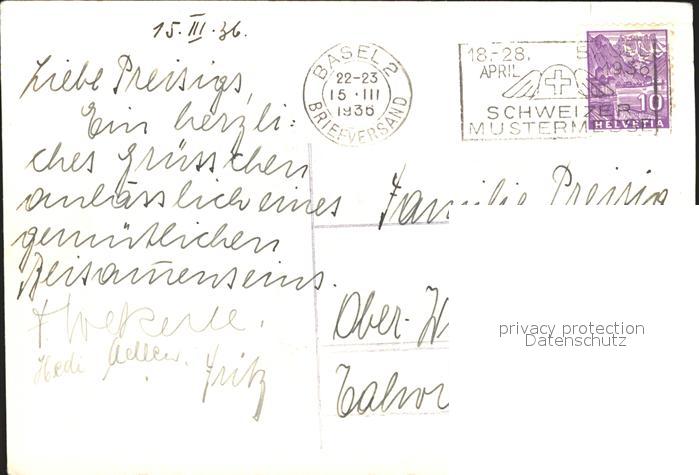 15. III. 36.
Liebe Preisigs,
Ein herzli-
ches Grüsschen
anlässlich eines
gemütlichen
Beisamenseins.
Hedi Adler.
Fritz
BASEL 2
22-23
15 · III
1936
BRIEFVERSAND
18.-28.
APRIL 1936
SCHWEIZER
MUSTERMESSE
10
HELVETIA
Familie Preisig
Ober-
privacy protection
Datenschutz